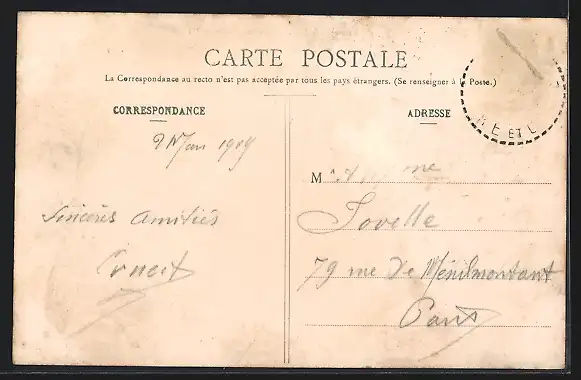 CARTE POSTALE
La Correspondance au recto n'est pas acceptée par tous les pays étrangers. (Se renseigner à la Poste.)
CORRESPONDANCE
ADRESSE
1909
M me
Jovelle
Sincères amitiés
Ernest
79 rue de Ménilmontant
Paris